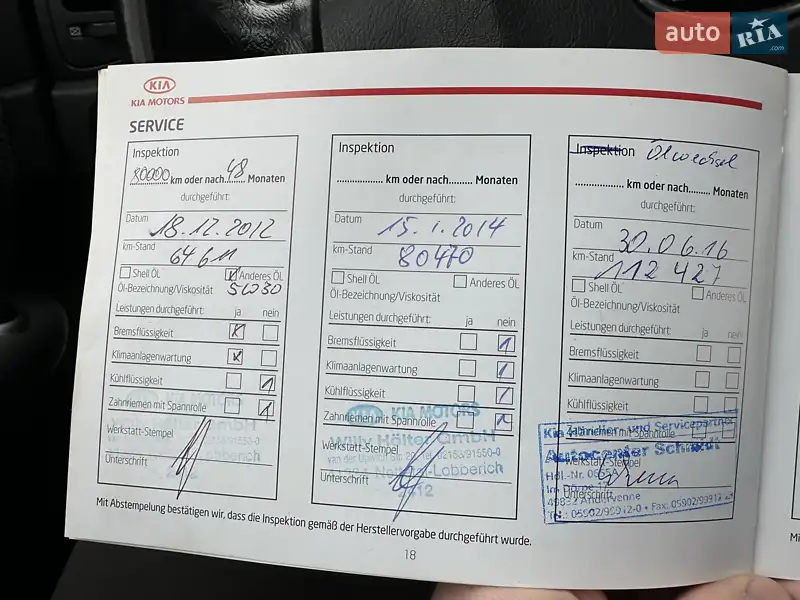 auto RIA .com
KIA
KIA MOTORS
SERVICE
Inspektion
80000 km oder nach 48 Monaten
durchgeführt:
Datum
18.12.2012
km-Stand
64611
Shell ÖL Anderes ÖL
Öl-Bezeichnung/Viskosität 5W30
Leistungen durchgeführt: ja nein
Bremsflüssigkeit
Klimaanlagenwartung
Kühlflüssigkeit
Zahnriemen mit Spannrolle
Werkstatt-Stempel
Unterschrift
Inspektion
km oder nach Monaten
durchgeführt:
Datum
15.1.2014
km-Stand
80470
Shell ÖL Anderes ÖL
Öl-Bezeichnung/Viskosität
Leistungen durchgeführt: ja nein
Bremsflüssigkeit
Klimaanlagenwartung
Kühlflüssigkeit
Zahnriemen mit Spannrolle
KIA MOTORS
Willy Hölter GmbH
Werkstatt-Stempel
Unterschrift
2412
Inspektion Ölwechsel
km oder nach Monaten
durchgeführt:
Datum
30.06.16
km-Stand
112427
Shell ÖL Anderes ÖL
Öl-Bezeichnung/Viskosität
Leistungen durchgeführt: ja nein
Bremsflüssigkeit
Klimaanlagenwartung
Kühlflüssigkeit
Zahnriemen mit Spannrolle
Kia Händler- und Servicepartner
Autocenter Schmidt
Werkstatt-Stempel
Unterschrift
49832 Andervenne
Tel.: 05902/93912-0 • Fax: 05902/93912
Mit Abstempelung bestätigen wir, dass die Inspektion gemäß der Herstellervorgabe durchgeführt wurde.
18